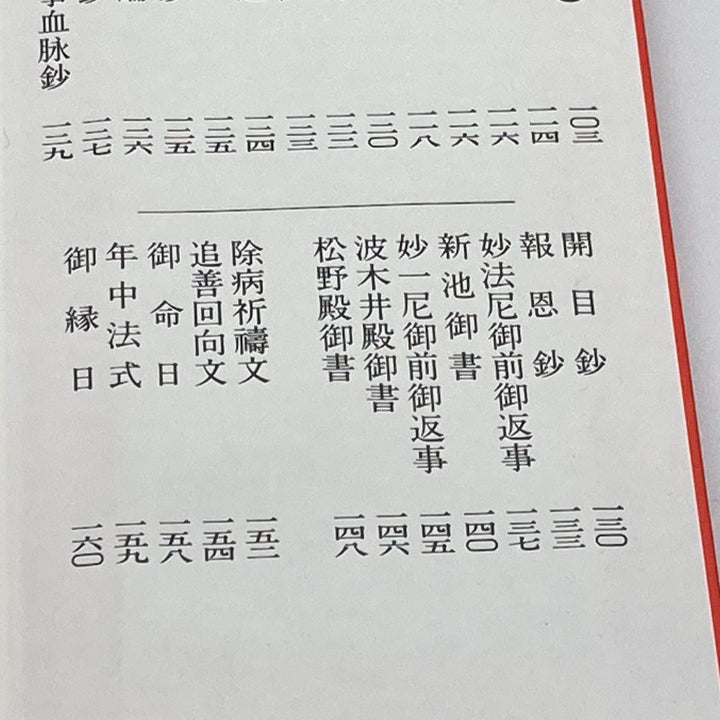 一〇三
一一四
一一六
一一六
一一八
一二〇
一二二
一二三
一二四
一二五
一二五
一二六
一二七
血脉鈔 一二九
開目鈔 一三〇
報恩鈔 一三三
妙法尼御前御返事 一三七
新池御書 一四〇
妙一尼御前御返事 一四五
波木井殿御書 一四六
松野殿御書 一四八
除病祈禱文 一五二
追善回向文 一五四
御命日 一五八
年中法式 一五九
御縁日 一六〇